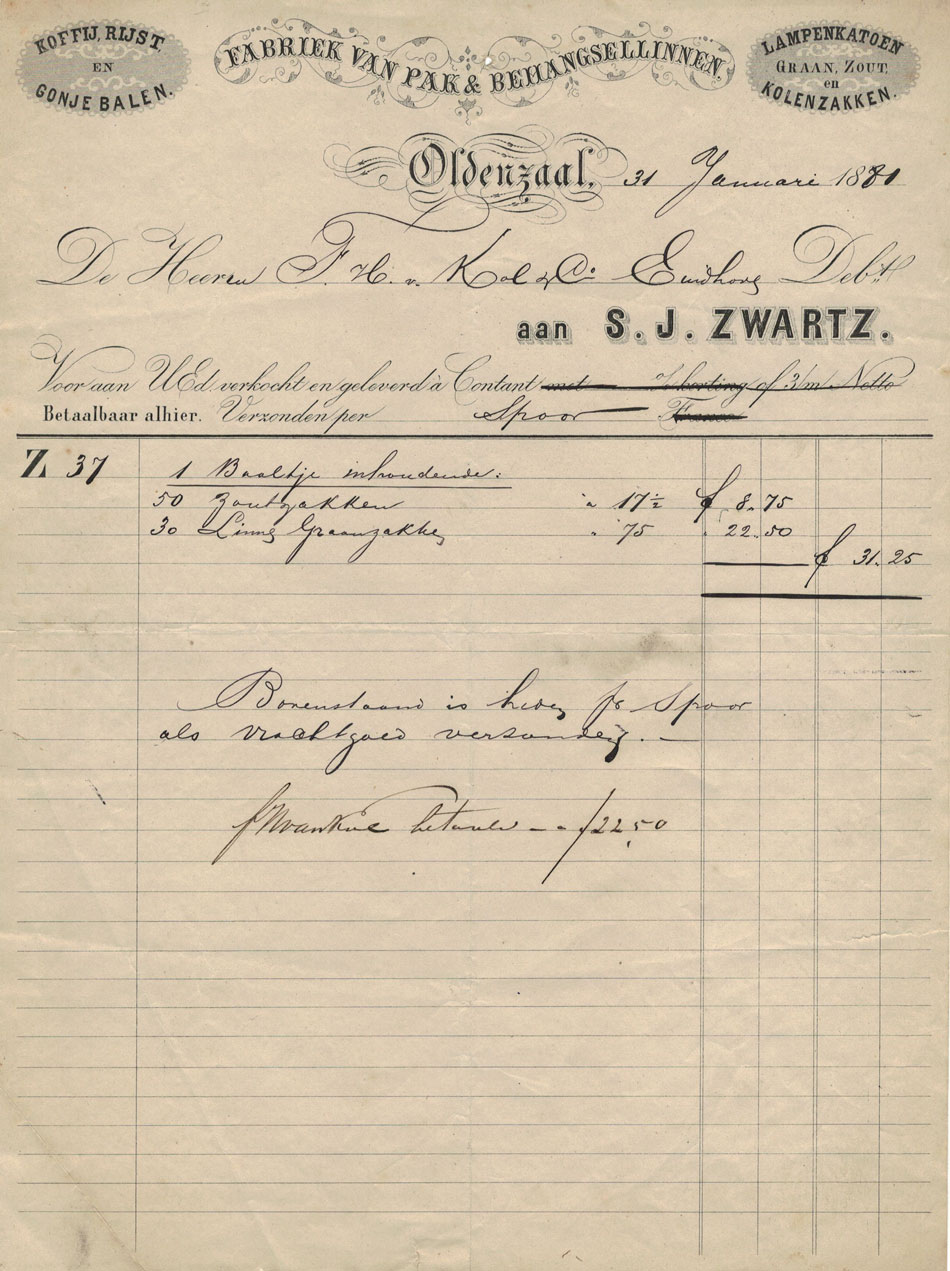 KOFFIJ, RIJST
EN
GONJE BALEN.
FABRIEK VAN PAK & BEHANGSELLINNEN.
LAMPENKATOEN
GRAAN, ZOUT
en
KOLENZAKKEN.
Oldenzaal, 31 Januari 1881
De Heeren F. H. v. Kol & Co Eindhoven Debt
aan S. J. ZWARTZ.
Voor aan UEd verkocht en geleverd à Contant met % korting of 3/m Netto
Betaalbaar alhier. Verzonden per Spoor Franco
Z 37 1 Baaltje inhoudende:
50 Zoutzakken à 17½ f 8.75
30 Linnen Graanzakken " 75 " 22.50
f 31.25
Bovenstaand is heden pr Spoor
als vrachtgoed verzonden.
betaald f 22,50